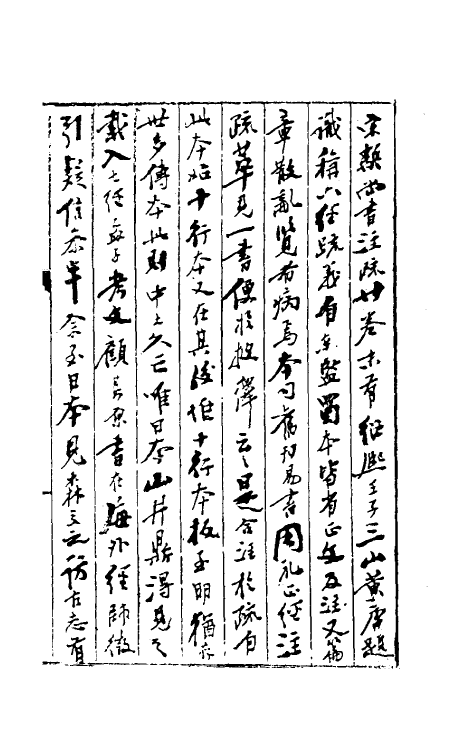 宋槧尚書注疏廿卷末有紹熙壬子三山黃唐題
識稱六經疏義自京監蜀本皆省正文及注又篇
章散亂覽者病焉本司舊刊易書周礼正經注
疏萃見一書便於披繹云云是合注於疏自
此本始十行本又在其後惟十行本板至明猶存
世多傳本此則中土久亡唯日本山井鼎得見之
載入七經孟子考文顧其原書在海外經師徵
引疑信參半余至日本見森立之訪古志有